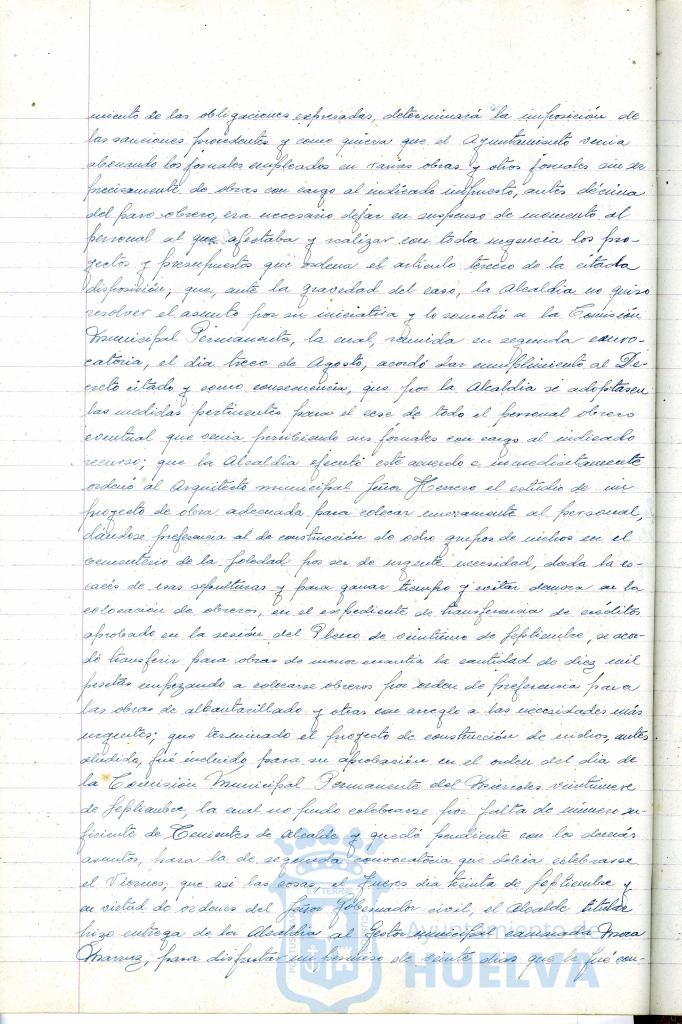 miento de las obligaciones expresadas, determinará la imposición de
las sanciones procedentes y como quiera que el Ayuntamiento venia
abonando los jornales empleados en varias obras y otros jornales sin ser
precisamente de obras con cargo al indicado impuesto, antes décima
del paro obrero, era necesario dejar en suspenso de momento al
personal al que afectaba y realizar con toda urgencia los pro-
yectos y presupuestos que ordena el articulo tercero de la citada
disposición; que, ante la gravedad del caso, la Alcaldia no quiso
resolver el asunto por su iniciativa y lo sometió a la Comisión
Municipal Permanente, la cual, reunida en segunda convo-
catoria, el dia trece de Agosto, acordó dar cumplimiento al De-
creto citado y como consecuencia, que por la Alcaldia se adoptasen
las medidas pertinentes para el cese de todo el personal obrero
eventual que venia percibiendo sus jornales con cargo al indicado
recurso; que la Alcaldia ejecutó este acuerdo e inmediatamente
ordenó al Arquitecto municipal Señor Herrero el estudio de un
proyecto de obra adecuada para colocar nuevamente al personal,
dándose preferencia al de construcción de ocho grupos de nichos en el
cementerio de la Soledad por ser de urgente necesidad, dada la es-
cacés de esas sepulturas y para ganar tiempo y evitar demora en la
colocación de obreros, en el expediente de transferencia de créditos
aprobado en la sesión del Pleno de veintiuno de Septiembre, se acor-
dó transferir para obras de menor cuantia la cantidad de diez mil
pesetas empezando a colocarse obreros por orden de preferencia para
las obras de alcantarillado y otras con arreglo a las necesidades más
urgentes; que terminado el proyecto de construcción de nichos, antes
aludido, fué incluido para su aprobación en el orden del dia de
la Comisión Municipal Permanente del Miercoles veintinueve
de Septiembre, la cual no pudo celebrarse por falta de número su-
ficiente de Tenientes de Alcalde y quedó pendiente con los demás
asuntos, para la de segunda convocatoria que debia celebrarse
el Viernes; que asi las cosas, el Jueves dia treinta de Septiembre y
en virtud de órdenes del Señor Gobernador civil, el Alcalde titular
hizo entrega de la Alcaldia al Gestor municipal camarada
para disfrutar un permiso de veinte dias que le fué con-
Ayuntamiento
HUELVA